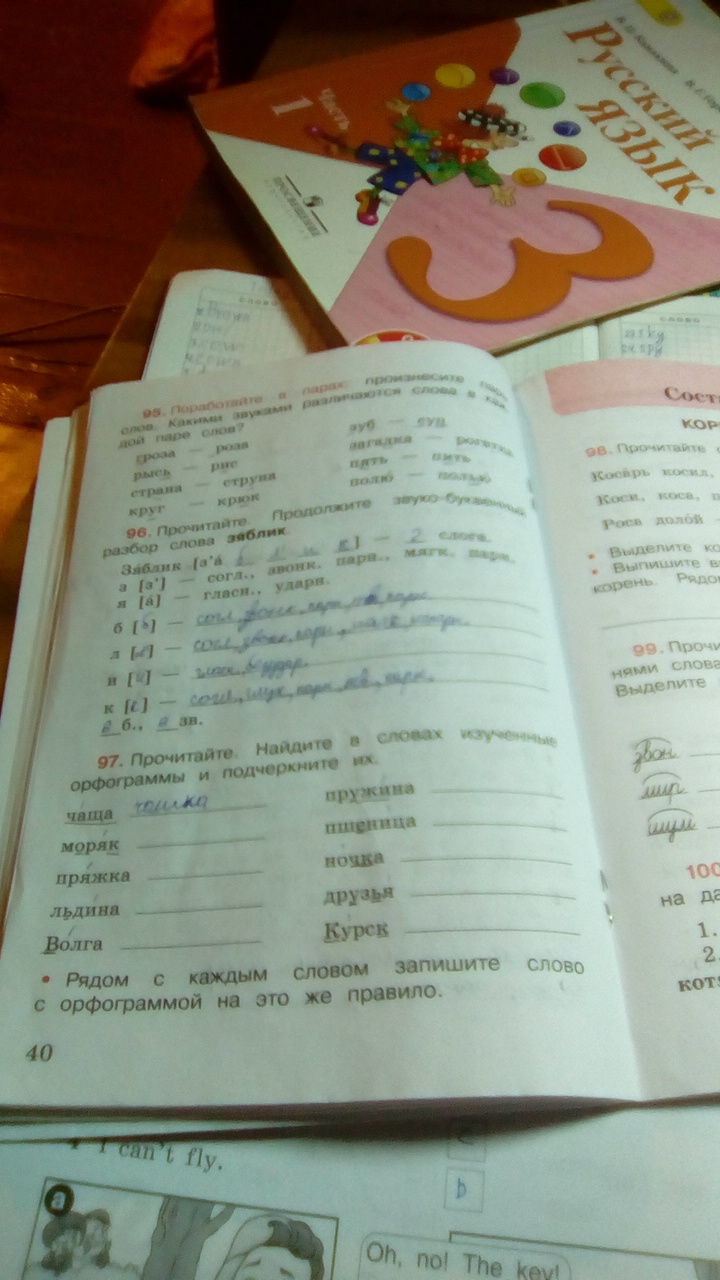 Русский
ЯЗЫК
Часть
1
ПРОСВЕЩЕНИЕ
3
слово
слово
95. Поработайте в парах: произнесите пары
слов. Какими звуками различаются слова в каж-
дой паре слов?
гроза — роза
зуб — суп
рысь — рис
загадка —
страна — струна
пять — пить
круг — крюк
полю — полью
96. Прочитайте. Продолжите звуко-буквенный
разбор слова зяблик.
Зяблик [з'á — 2 слога.
з [з'] — согл., звонк. парн., мягк. парн.
я [á] — гласн., ударн.
б [б] — согл., звонк., парн., тв., парн.
л — согл., звонк.
и [и] —
к — согл., глух., парн., тв., парн.
6 б., 6 зв.
97. Прочитайте. Найдите в словах изученные
орфограммы и подчеркните их.
чаща чашка
пружина
моряк
пшеница
пряжка
ночка
льдина
друзья
Волга
Курск
• Рядом с каждым словом запишите слово
с орфограммой на это же правило.
40
98. Прочитайте
Косарь косил,
Коси, коса,
Роса долой
• Выделите
• Выпишите
корень.
99.
нями слова
Выделите
звон
мир
шум
100
на
1.
2.
I can't fly.
a
b
Oh, no! The key!